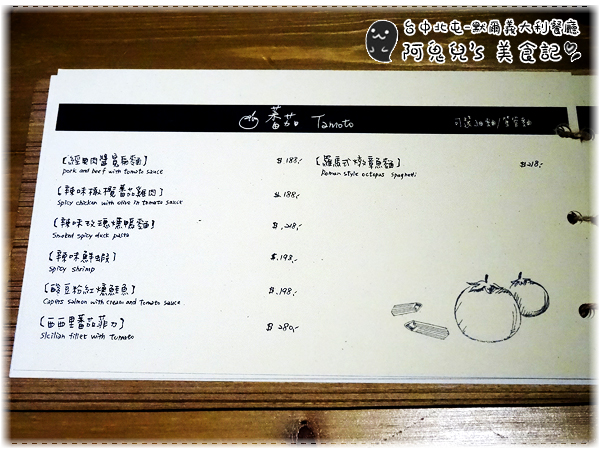 台中北屯-默爾義大利餐廳
阿兔兒's 美食記
蕃茄 Tamoto 可選細麵/筆管麵
[經典肉醬寬扁麵] $.188.-
pork and beef with tomato sauce
[辣味橄欖蕃茄雞肉] $.188.-
Spicy chicken with olive in tomato sauce
[辣味玫瑰燻鴨麵] $.218.-
Smoked spicy duck pasta
[辣味鮮蝦] $.198.-
Spicy shrimp
[酸豆粉紅燻鮭魚] $.198.-
Capers salmon with cream and Tomato sauce.
[西西里蕃茄菲力] $ 280.-
Sicilian fillet with Tomato
[羅馬式墩章魚麵] $218.-
Roman style octopus spaghetti